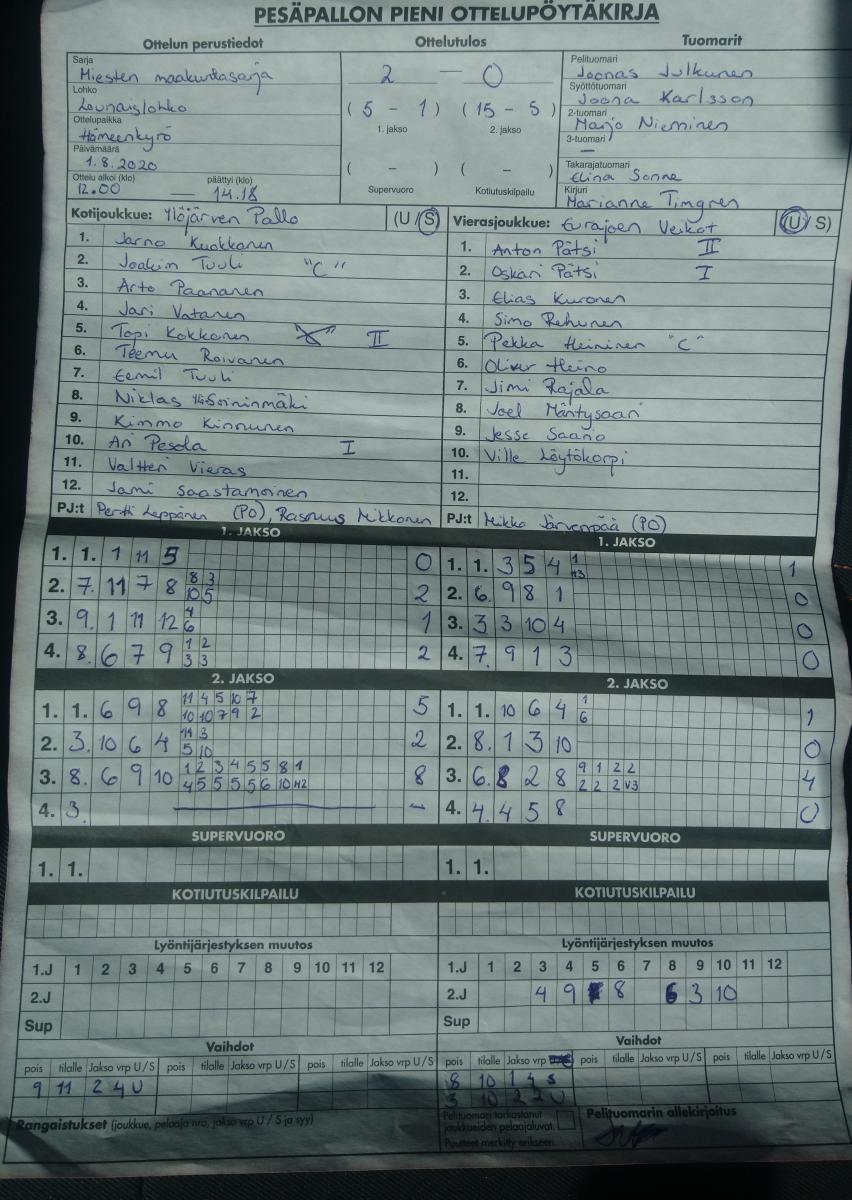 PESÄPALLON PIENI OTTELUPÖYTÄKIRJA
Ottelun perustiedot
Sarja
Miesten maakuntasarja
Lohko
Lounaislohko
Ottelupaikka
Hämeenkyrö
Päivämäärä
1.8.2020
Ottelu alkoi (klo) päättyi (klo)
12.00 — 14.18
Ottelutulos
2 — 0
( 5 - 1 ) ( 15 - 5 )
1. jakso 2. jakso
( - ) ( - )
Supervuoro Kotiutuskilpailu
Tuomarit
Pelituomari
Joonas Julkunen
Syöttötuomari
Joona Karlsson
2-tuomari
Marjo Nieminen
3-tuomari
—
Takarajatuomari
Elina Sonne
Kirjuri
Marianne Timgren
Kotijoukkue: Ylöjärven Pallo (U/S)
1. Jarno Kuokkanen
2. Joakim Tuuli "C"
3. Arto Paananen
4. Jari Vatanen
5. Topi Kokkonen II
6. Teemu Roivanen
7. Eemil Tuuli
8. Niklas
9. Kimmo Kinnunen
10. Ari Pesola I
11. Valtteri Vieras
12. Jami Saastamoinen
PJ:t Pertti Leppänen (PO), Rasmus Mikkonen
Vierasjoukkue: Eurajoen Veikot (U/S)
1. Anton Pätsi II
2. Oskari Pätsi I
3. Elias Kuronen
4. Simo Rehunen
5. Pekka Heininen "C"
6. Oliver Heino
7. Jimi Rajala
8. Joel Mäntysaari
9. Jesse Saario
10. Ville Löytökorpi
11.
12.
PJ:t Mikko Järvenpää (PO)
1. JAKSO
1. 1. 1 11 5 0
2. 7. 11 7 8 8 3 2
10 5
3. 9. 1 11 12 4 1
6
4. 8. 6 7 9 1 2 2
3 3
2. JAKSO
1. 1. 6 9 8 11 4 5 10 7 5
10 10 7 9 2
2. 3. 10 6 4 11 3 2
5 10
3. 8. 6 9 10 1 2 3 4 5 5 8 1 8
4 5 5 5 5 6 10 H2
4. 3. — –
SUPERVUORO
1. 1.
KOTIUTUSKILPAILU
Lyöntijärjestyksen muutos
1.J 1 2 3 4 5 6 7 8 9 10 11 12
2.J
Sup
Vaihdot
pois tilalle Jakso vrp U/S pois tilalle Jakso vrp U/S pois tilalle Jakso vrp U/S
9 11 2 4 U
Rangaistukset (joukkue, pelaaja nro, jakso vrp U / S ja syy)
1. JAKSO
1. 1. 3 5 4 1 1
H3
2. 6. 9 8 1 0
3. 3 3 10 4 0
4. 7. 9 1 3 0
2. JAKSO
1. 1. 10 6 4 1 1
6
2. 8. 1 3 10 0
3. 6. 8 2 8 9 1 2 2 4
2 2 2 V3
4. 4. 4 5 8 0
SUPERVUORO
1. 1.
KOTIUTUSKILPAILU
Lyöntijärjestyksen muutos
1.J 1 2 3 4 5 6 7 8 9 10 11 12
2.J 4 9 8 6 3 10
Sup
Vaihdot
pois tilalle Jakso vrp pois tilalle Jakso vrp U/S pois tilalle Jakso vrp U/S
8 10 1 4 S
3 10 2 2 U
Pelituomari tarkastanut
joukkueiden pelaajaluvat.
Puutteet merkitty erikseen.
Pelituomarin allekirjoitus